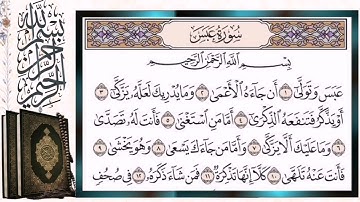 سُورَةُ عَبَسَ
بِسْمِ اللَّهِ الرَّحْمَٰنِ الرَّحِيمِ
عَبَسَ وَتَوَلَّىٰٓ ١ أَن جَآءَهُ ٱلْأَعْمَىٰ ٢ وَمَا يُدْرِيكَ لَعَلَّهُۥ يَزَّكَّىٰٓ ٣
أَوْ يَذَّكَّرُ فَتَنفَعَهُ ٱلذِّكْرَىٰٓ ٤ أَمَّا مَنِ ٱسْتَغْنَىٰ ٥ فَأَنتَ لَهُۥ تَصَدَّىٰ
٦ وَمَا عَلَيْكَ أَلَّا يَزَّكَّىٰ ٧ وَأَمَّا مَن جَآءَكَ يَسْعَىٰ ٨ وَهُوَ يَخْشَىٰ ٩
فَأَنتَ عَنْهُ تَلَهَّىٰ ١٠ كَلَّآ إِنَّهَا تَذْكِرَةٌ ١١ فَمَن شَآءَ ذَكَرَهُۥ ١٢ فِى صُحُفٍ
بسم الله الرحمن الرحيم